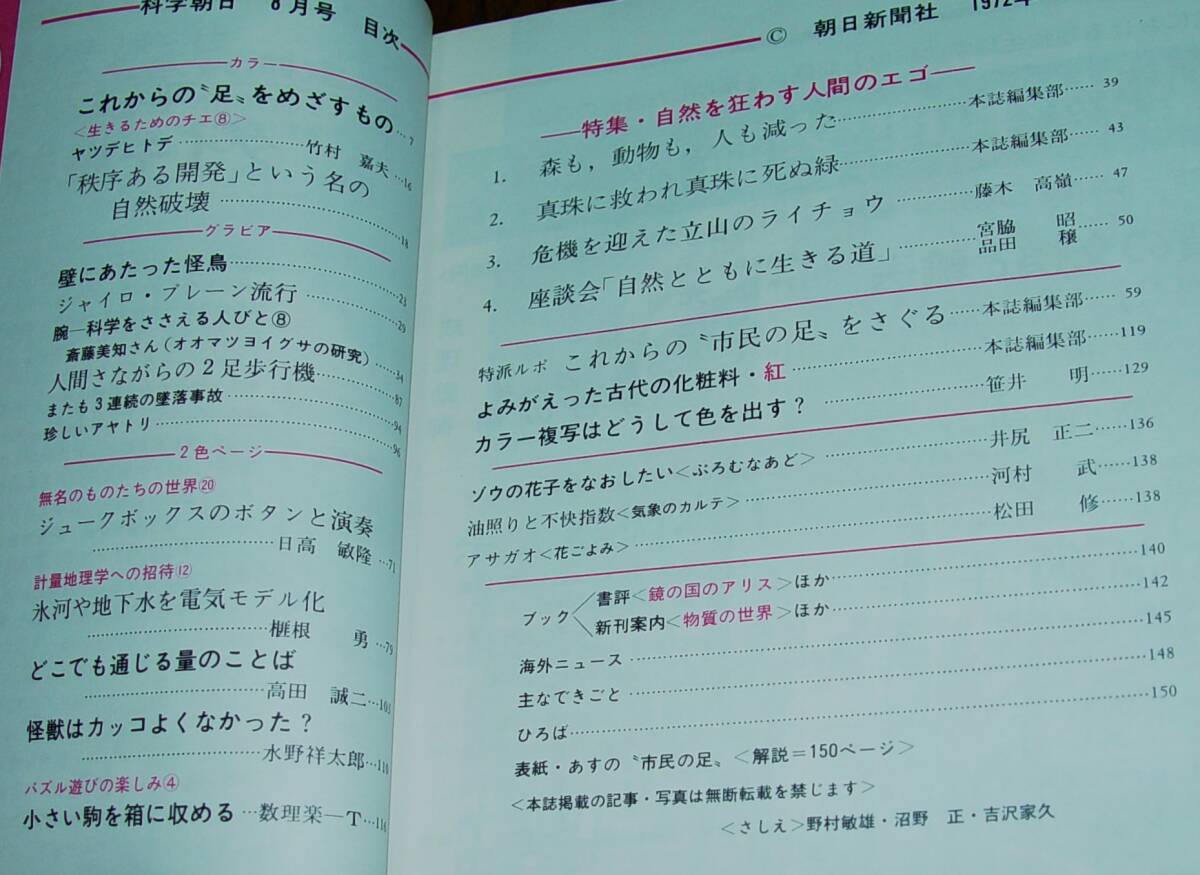 科学朝日 8月号 目次
カラー
これからの〝足〟をめざすもの…7
<生きるためのチエ⑧>
ヤツデヒトデ……竹村 嘉夫…16
「秩序ある開発」という名の
自然破壊……18
グラビア
壁にあたった怪鳥……23
ジャイロ・プレーン流行……29
腕―科学をささえる人びと⑧
斎藤美知さん(オオマツヨイグサの研究)…34
人間さながらの2足歩行機……87
またも3連続の墜落事故……94
珍しいアヤトリ……96
2色ページ
無名のものたちの世界⑳
ジュークボックスのボタンと演奏
……日高 敏隆…71
計量地理学への招待⑫
氷河や地下水を電気モデル化
……榧根 勇…79
どこでも通じる量のことば
……高田 誠二…103
怪獣はカッコよくなかった?
……水野祥太郎…110
パズル遊びの楽しみ④
小さい駒を箱に収める…数理楽―T…116
© 朝日新聞社 1972年
―特集・自然を狂わす人間のエゴ―
1. 森も,動物も,人も減った……本誌編集部……39
2. 真珠に救われ真珠に死ぬ緑……本誌編集部……43
3. 危機を迎えた立山のライチョウ……藤木 高嶺……47
4. 座談会「自然とともに生きる道」……宮脇 昭 品田 穣……50
特派ルポ これからの〝市民の足〟をさぐる……本誌編集部……59
よみがえった古代の化粧料・紅……本誌編集部……119
カラー複写はどうして色を出す?……笹井 明……129
ゾウの花子をなおしたい<ぷろむなあど>……井尻 正二……136
油照りと不快指数<気象のカルテ>……河村 武……138
アサガオ<花ごよみ>……松田 修……138
ブック 書評<鏡の国のアリス>ほか……140
新刊案内<物質の世界>ほか……142
海外ニュース……145
主なできごと……148
ひろば……150
表紙・あすの〝市民の足〟<解説=150ページ>
<本誌掲載の記事・写真は無断転載を禁じます>
<さしえ>野村敏雄・沼野 正・吉沢家久